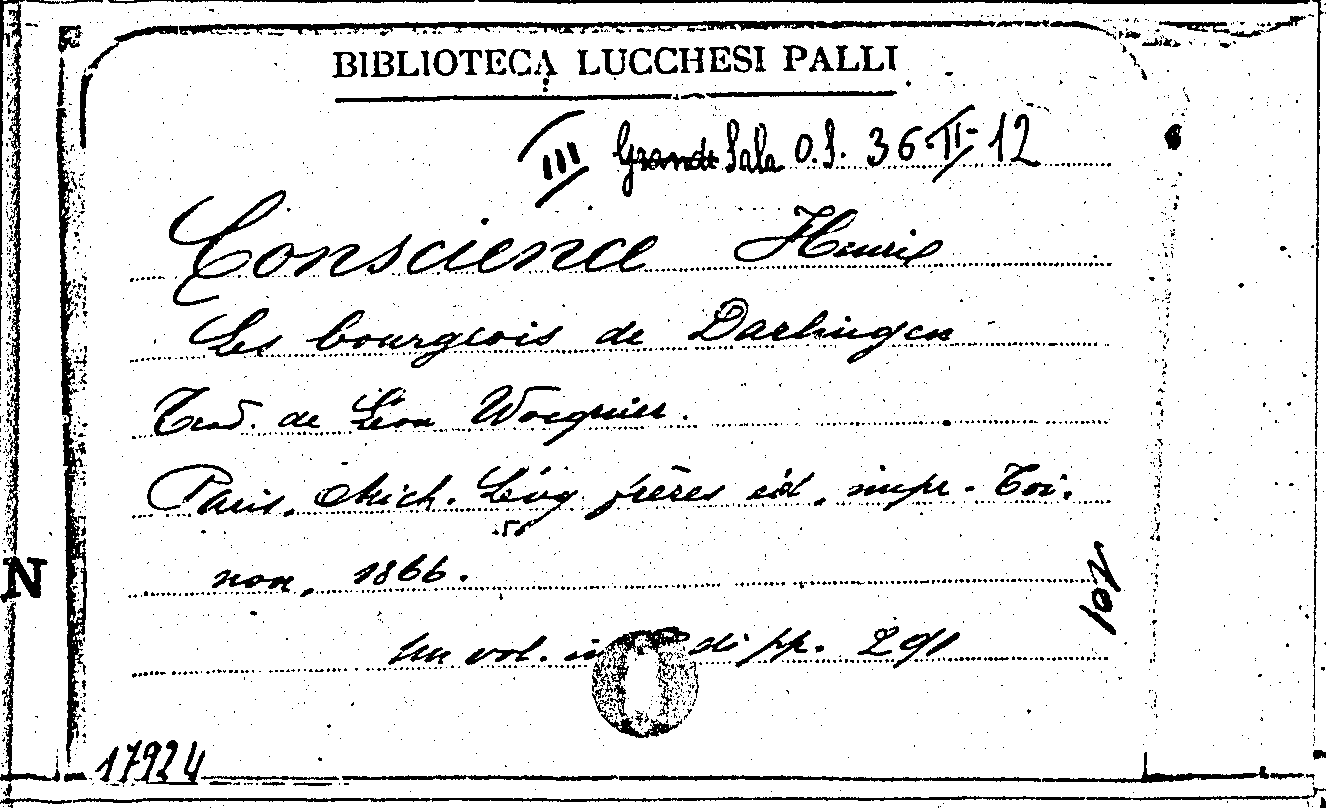 BIBLIOTECA LUCCHESI PALLI
III Grande Sala O.S. 36-II-12
Conscience Henri
Les bourgeois de Darlingen
Trad. de Léon Wocquier.
Paris, Mich. Lévy frères éd, impr. Toi.
non, 1866.
Un vol. di pp. 291
17924
N